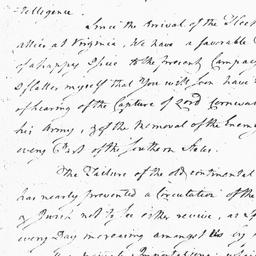 telligence.
Since the Arrival of the Fleet
allies at Virginia, We have a favorable
of a happy Issue to the present Campaign
I flatter myself that You will soon have
of hearing of the Capture of Lord Cornwa
his Army, & of the Removal of the Enem
every Part of the Southern States.
The Failure of the old continental
has nearly prevented a Circulation of the
& Parish not to be either receive, as
every Day increasing amongst Us by